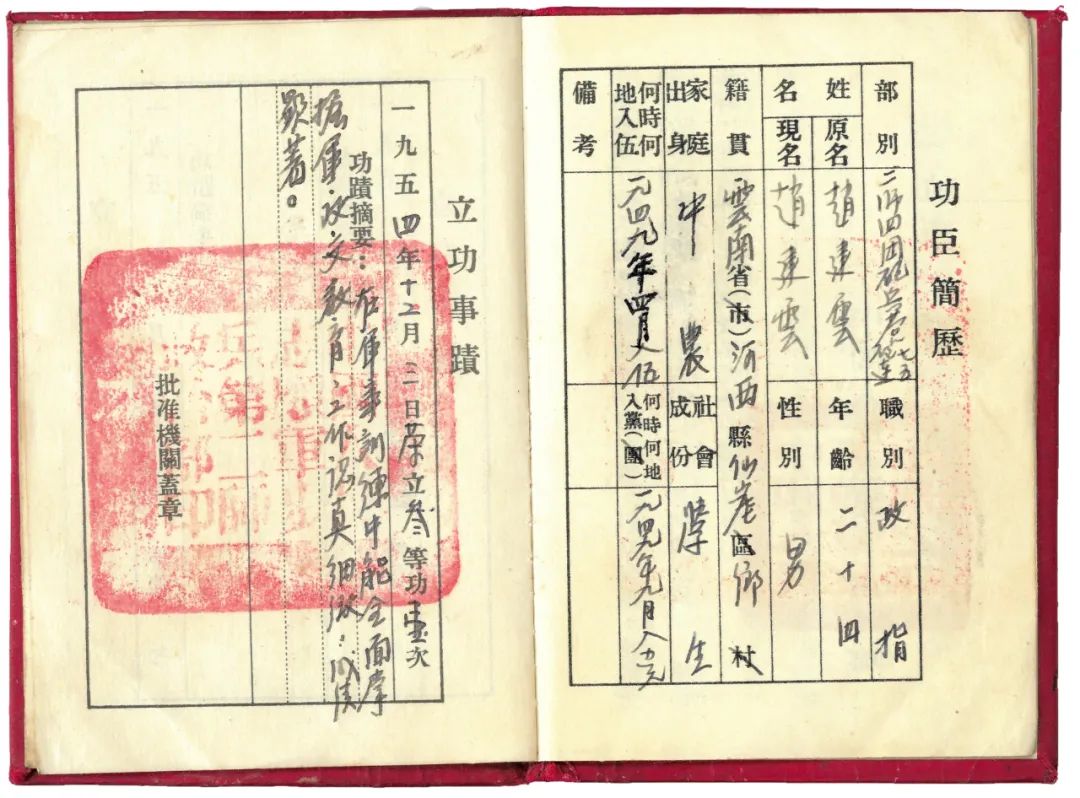 功臣簡歷
部別 二师四团砲兵营七五砲连 職別 政指
姓名 原名 趙連雲 年齡 二十四
現名 趙連雲 性別 男
籍貫 雲南省(市)河西縣仙崖區鄉村
家庭出身 中農 社會成份 學生
何時何地入伍 一九四九年四月入伍 何時何地入黨(團) 一九四九年九月入党
備考
立功事蹟
一九五四年十二月三一日荣立叁等功壹次
功蹟摘要：在軍事訓練中能全面掌
握軍.政.文教育：工作認真細緻：成績
顯著。
批准機關蓋章